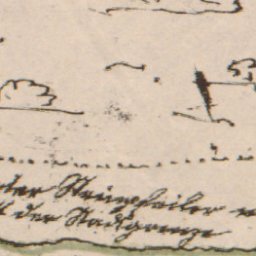 alter Steinpfeiler
der Stadtgrenze